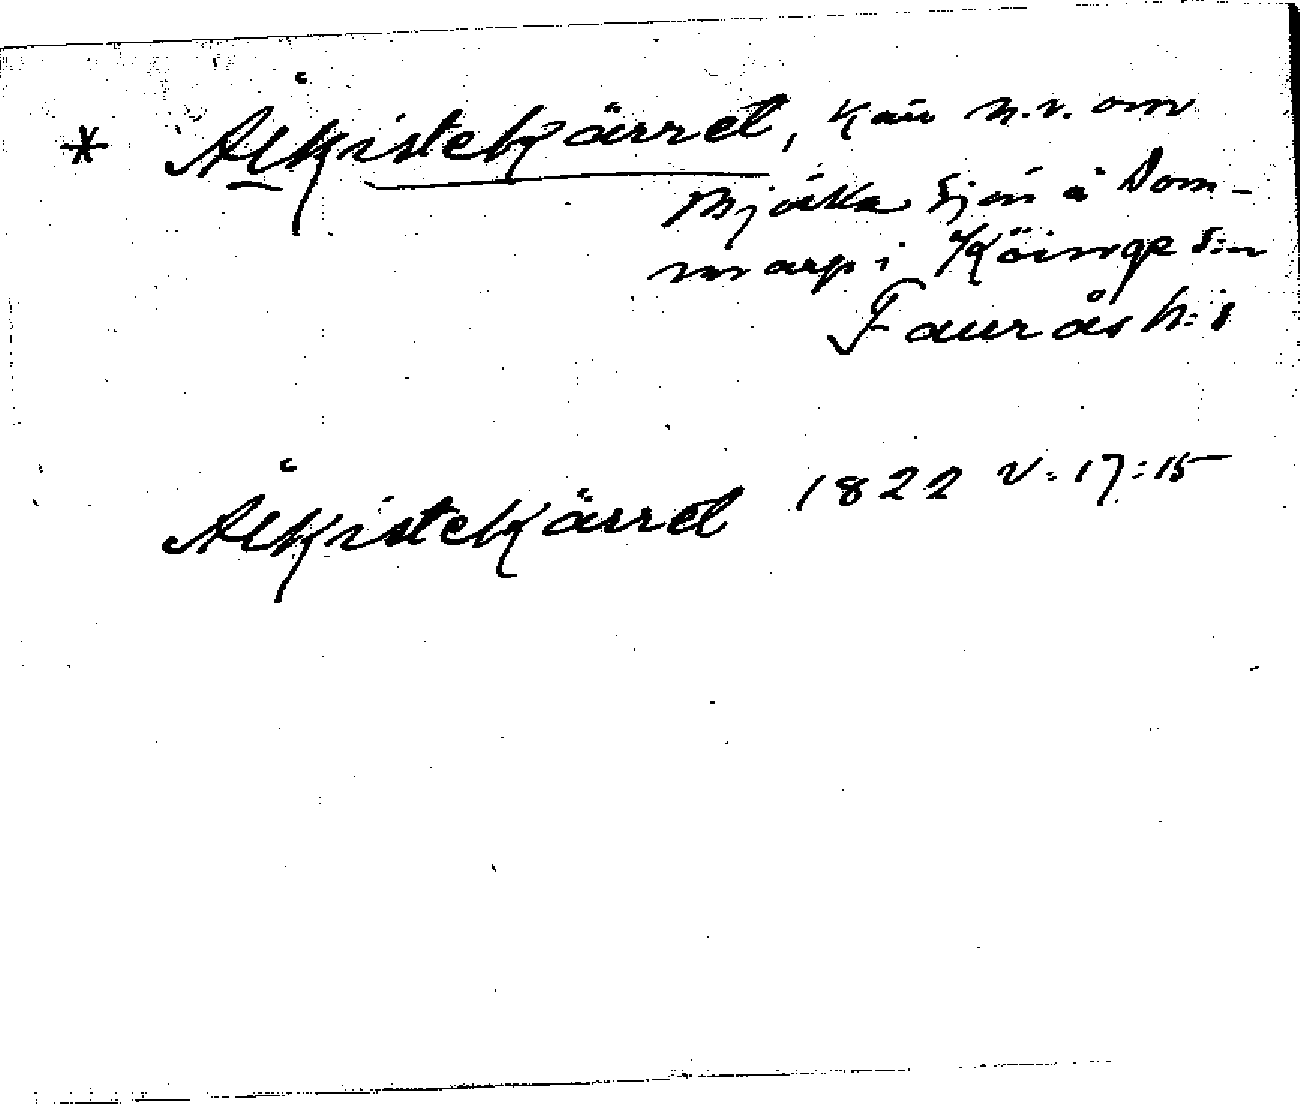 * Ålkistekärret, kärr n.v. om
Björka Sjön å Som-
marp i Köinge S:n
Faurås h:d
Ålkistekärret 1822 V:17:15